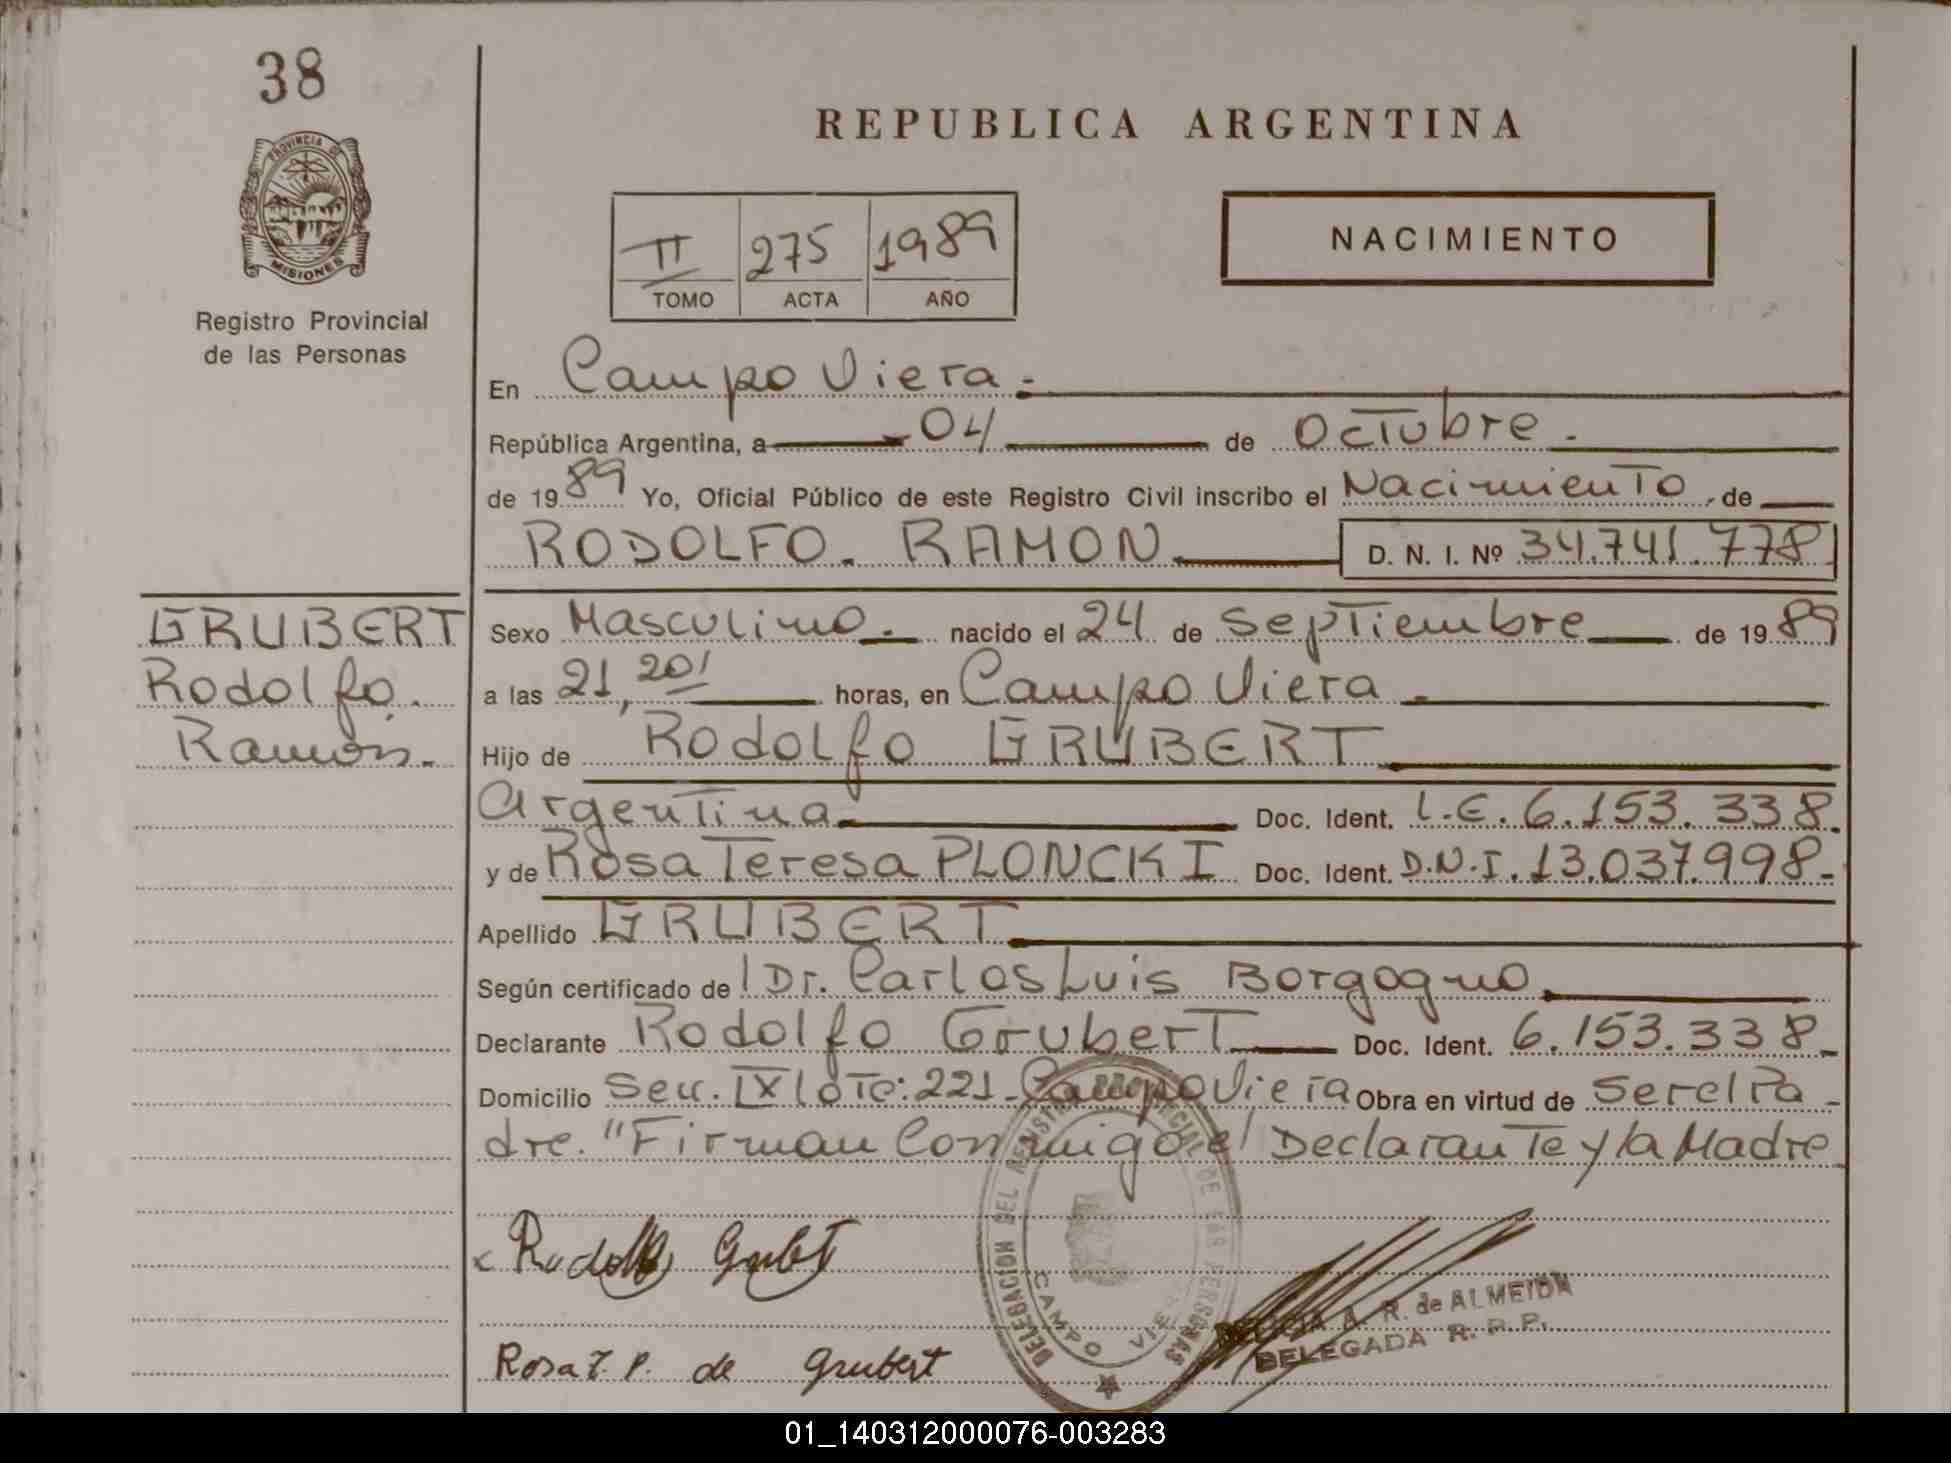 38
PROVINCIA DE
MISIONES
Registro Provincial
de las Personas
GRUBERT
Rodolfo.
Ramón.-
REPUBLICA ARGENTINA
II 275 1989
TOMO ACTA AÑO
NACIMIENTO
En Campo Viera.-
República Argentina, a 04 de Octubre.-
de 1989 Yo, Oficial Público de este Registro Civil inscribo el Nacimiento, de
RODOLFO. RAMON. D. N. I. Nº 34.741.778
Sexo Masculino.- nacido el 24 de Septiembre de 1989
a las 21,20' horas, en Campo Viera.-
Hijo de Rodolfo GRUBERT
Argentina Doc. Ident. L.E. 6.153.338.
y de Rosa Teresa PLONCKI Doc. Ident. D.N.I. 13.037.998-
Apellido GRUBERT
Según certificado de Dr. Carlos Luis Borgogno
Declarante Rodolfo Grubert Doc. Ident. 6.153.338-
Domicilio Secc. IX lote: 221-Campo Viera Obra en virtud de Ser el Pa-
dre. "Firman Conmigo el Declarante y la Madre
Rodolfo Grubert
Rosa T. P. de Grubert
DELEGACION DEL REGISTRO PROVINCIAL DE LAS PERSONAS
CAMPO VIERA
A. R. de ALMEIDA
DELEGADA R. P. P.
01_140312000076-003283